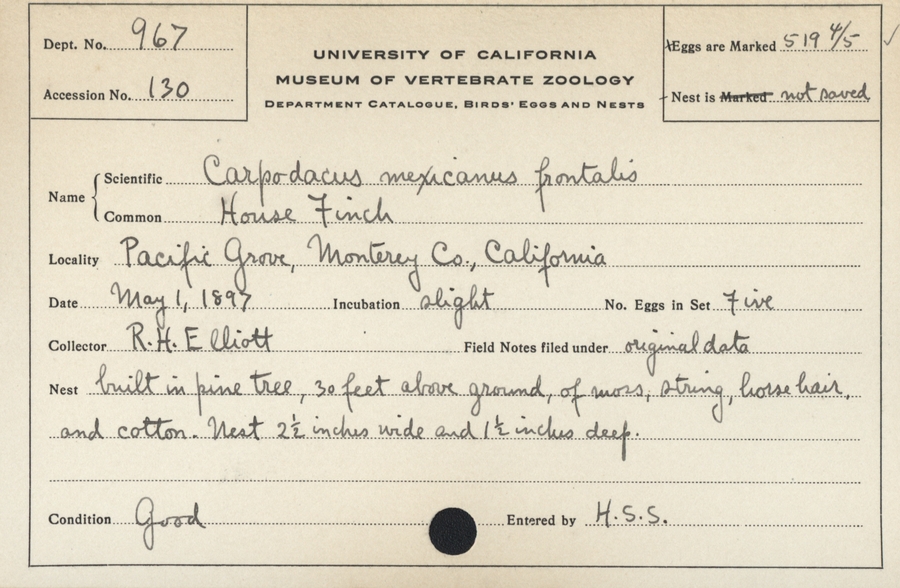 Dept. No. 967
Accession No. 130
UNIVERSITY OF CALIFORNIA
MUSEUM OF VERTEBRATE ZOOLOGY
DEPARTMENT CATALOGUE, BIRDS' EGGS AND NESTS
Eggs are Marked 519 4/5 ✓
Nest is Marked not saved
Name { Scientific Carpodacus mexicanus frontalis
Common House Finch
Locality Pacific Grove, Monterey Co., California
Date May 1, 1897 Incubation slight No. Eggs in Set Five
Collector R.H. Elliott Field Notes filed under original data
Nest built in pine tree, 30 feet above ground, of moss, string, horse hair,
and cotton. Nest 2½ inches wide and 1½ inches deep.
Condition Good Entered by H.S.S.